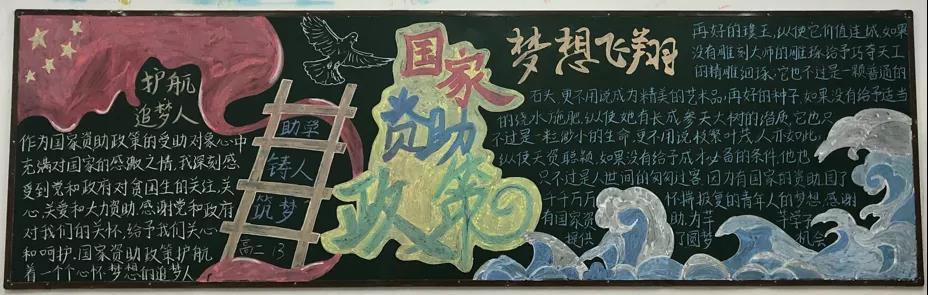 护航
追梦人
作为国家资助政策的受助对象,心中
充满对国家的感激之情,我深刻感
受到党和政府对贫困生的关注,关
心,关爱和大力资助,感谢党和政府
对我们的关怀,给予我们关心
和呵护,国家资助政策护航
着一个个心怀梦想的追梦人
助学
铸人
筑梦
高二 13
国家
资助
政策
梦想飞翔
再好的璞玉,纵使它价值连城,如果
没有雕刻大师的雕琢,给予巧夺天工
的精雕细琢,它也不过是一颗普通的
石头,更不用说成为精美的艺术品,再好的种子,如果没有给予适当
的浇水施肥,纵使她有长成参天大树的潜质,它也只
不过是一粒渺小的生命,更不用说枝繁叶茂,人亦如此,
纵使天资聪颖,如果没有给予成才必备的条件,他也
只不过是人世间的匆匆过客,因为有国家的资助,圆了
千千万万
怀揣报复的青年人的梦想,感谢
有国家资
助,为莘
莘学子
提供
了圆梦
机会